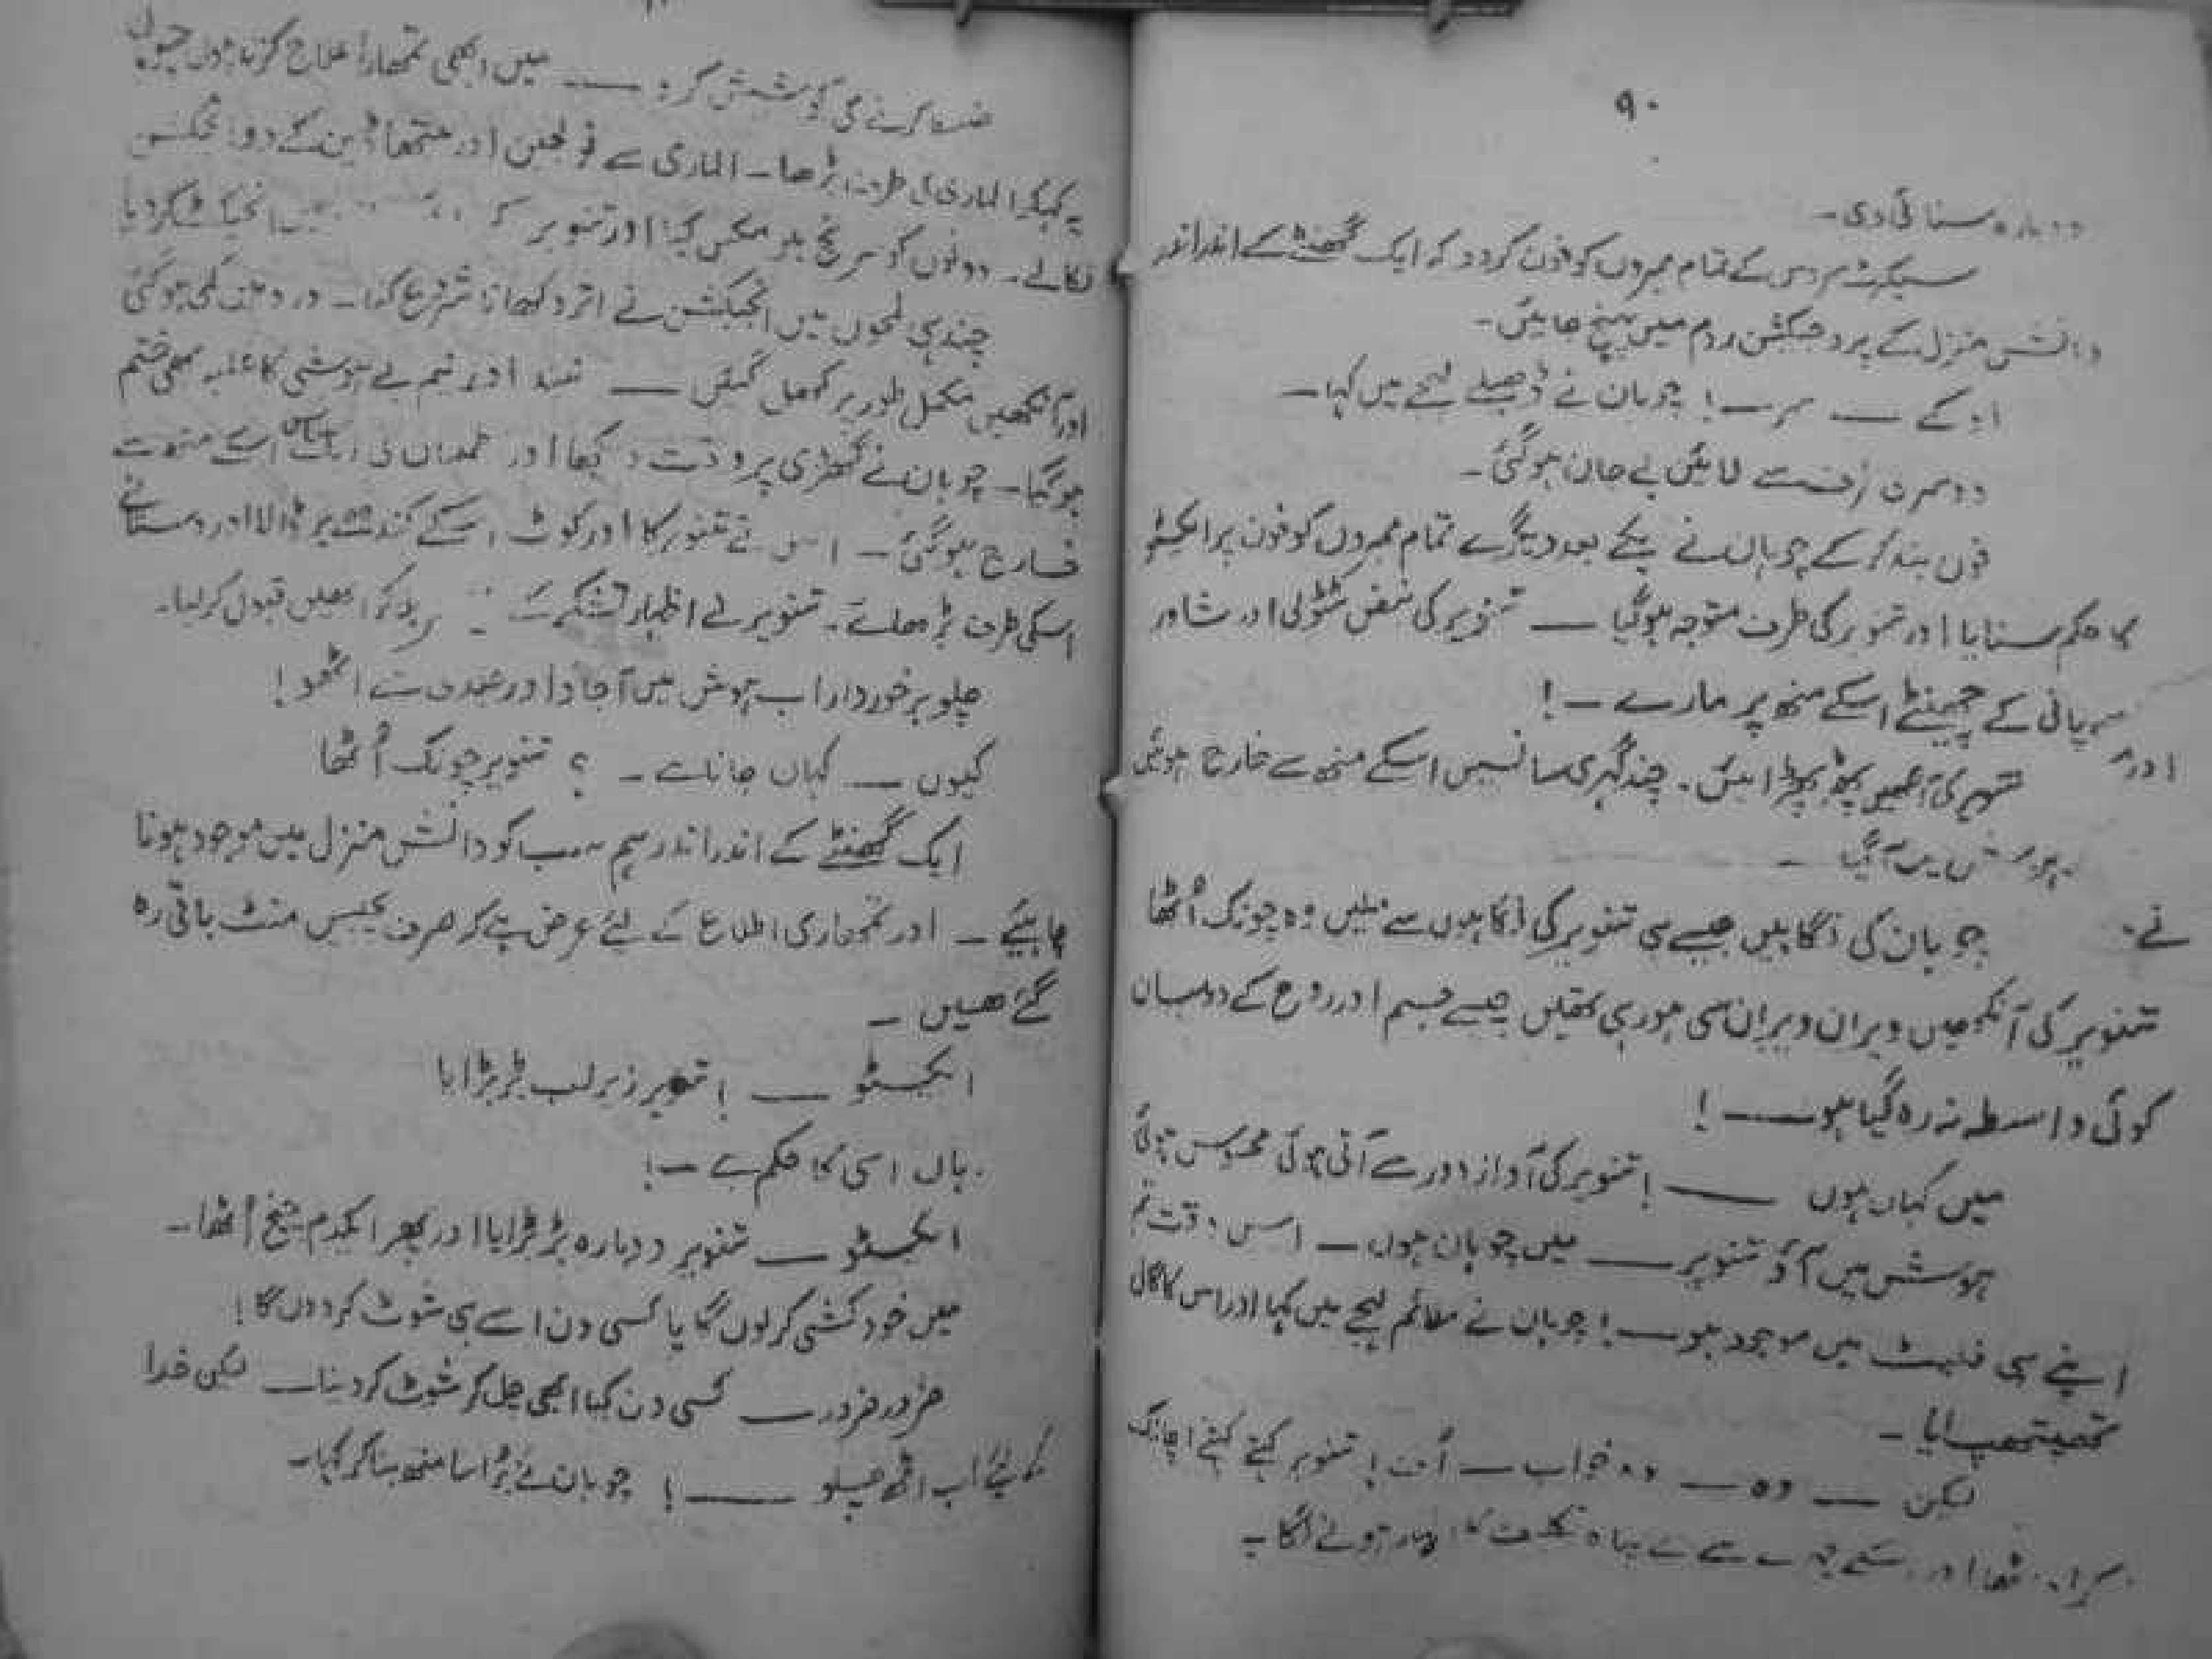 ۹۰
دوبارہ سنائی دی۔
سیکرٹ سروس کے تمام ممبروں کو فون کر دو کہ ایک گھنٹے کے اندر اندر
دانش منزل کے پروجیکشن روم میں پہنچ جائیں۔
او کے — سر —! چوہان نے ڈھیلے لہجے میں کہا۔
دوسری طرف سے لائین بے جان ہو گئی۔
فون بند کر کے چوہان نے یکے بعد دیگرے تمام ممبروں کو فون پر ایکسٹو
کا حکم سنایا اور تنویر کی طرف متوجہ ہو گیا — تنویر کی نبض ٹٹولی اور شاور
پانی کے چھینٹے اسکے منھ پر مارے —!
کی آنکھیں پھڑپھڑائیں۔ چند گہری سانسیں اسکے منھ سے خارج ہوئیں
اور
ہوش میں آ گیا —
چوہان کی نگاہیں جیسے ہی تنویر کی نگاہوں سے ملیں وہ چونک اُٹھا
نے
تنویر کی آنکھیں ویران ویران سی ہو رہی تھیں جیسے جسم اور روح کے درمیان
کوئی واسطہ نہ رہ گیا ہو —!
میں کہاں ہوں —! تنویر کی آواز دور سے آتی ہوئی محسوس ہوئی
ہوش میں آؤ تنویر — میں چوہان ہوں — اس وقت تم
اپنے ہی فلیٹ میں موجود ہو —! چوہان نے ملائم لہجے میں کہا اور اس کا گال
تھپتھپایا —
لیکن — وہ — وہ خواب — اُف! تنویر کہتے کہتے اچانک
کراہ اٹھا اور اسکے چہرے سے بے پناہ تکلیف کا اظہار ہونے لگا —
کرنے کی کوشش کرو — میں ابھی تمھارا علاج کرتا ہوں چوہان
یہ کہہ کر الماری کی طرف بڑھا۔ الماری سے اور کے دو انجکشن
نکالے۔ دونوں کو سرنج میں مکس کیا اور تنویر کے میں انجیکٹ کر دیا
چند ہی لمحوں میں انجیکشن نے اثر دکھانا شروع کیا — درد میں کمی ہو گئی
اور آنکھیں مکمل طور پر کھل گئیں — نیند اور نیم بے ہوشی کا غلبہ بھی ختم
ہو گیا۔ چوہان نے گھڑی پر وقت دیکھا اور
فارغ ہو گئی — اس نے تنویر کا اور کوٹ اسکے کندھے پر ڈالا اور دستانے
اسکی طرف بڑھائے۔ تنویر نے اظہار تشکر کے انھیں قبول کر لیا۔
چلو برخوردار اب ہوش میں آجاؤ اور جلدی سے اٹھو!
کیوں — کہاں جانا ہے —؟ تنویر چونک اُٹھا
ایک گھنٹے کے اندر اندر ہم سب کو دانش منزل میں موجود ہونا
چاہیئے — اور تمھاری اطلاع کے لئے عرض ہے کہ صرف بیس منٹ باقی رہ
گئے ھیں —
ایکسٹو —! تنویر زیر لب بڑبڑایا
ہاں اسی کا حکم ہے —!
ایکسٹو — تنویر دوبارہ بڑبڑایا اور پھر ایکدم چیخ اُٹھا۔
میں خودکشی کر لوں گا یا کسی دن اسے ہی شوٹ کر دوں گا!
ضرور ضرور — کسی دن کیا ابھی چل کر شوٹ کر دینا — لیکن خدا
کے لیئے اب اٹھ چلو —! چوہان نے بُرا سا منھ بنا کر کہا۔